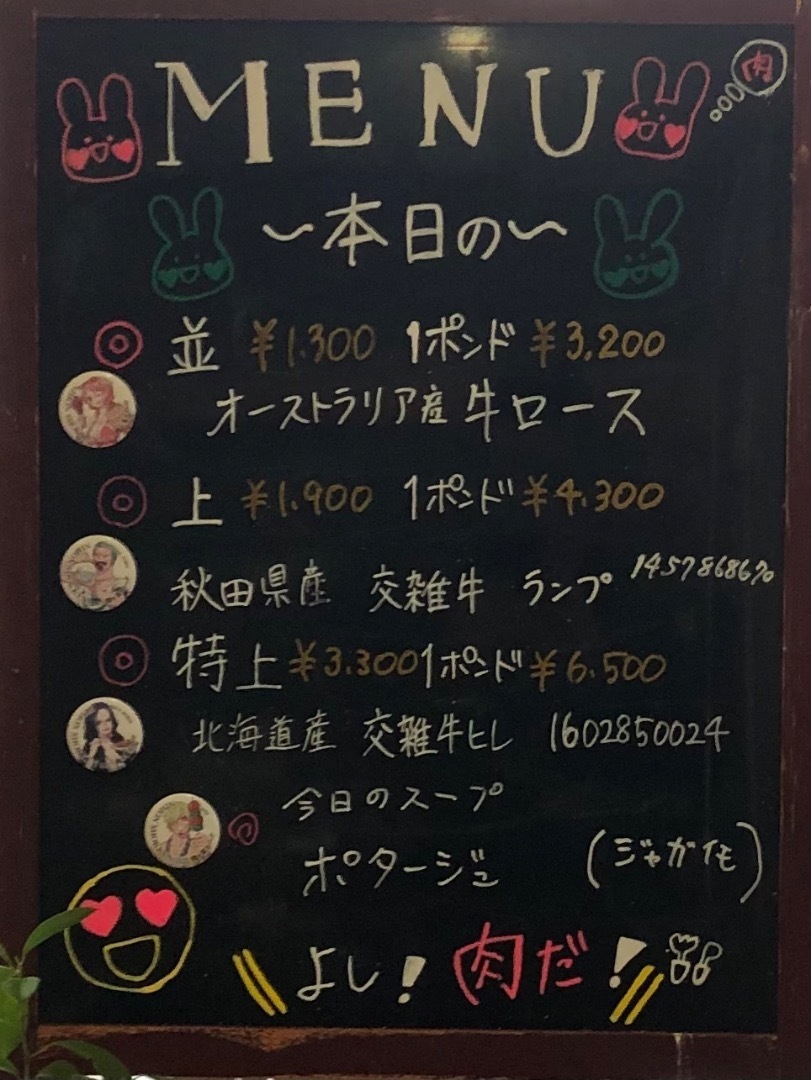 MENU
肉
〜本日の〜
並 ¥1.300 1ポンド ¥3.200
オーストラリア産 牛ロース
上 ¥1.900 1ポンド ¥4.300
秋田県産 交雑牛 ランプ 1457868670
特上 ¥3.300 1ポンド ¥6.500
北海道産 交雑牛ヒレ 1602850024
今日のスープ
ポタージュ (ジャガイモ)
よし! 肉だ!